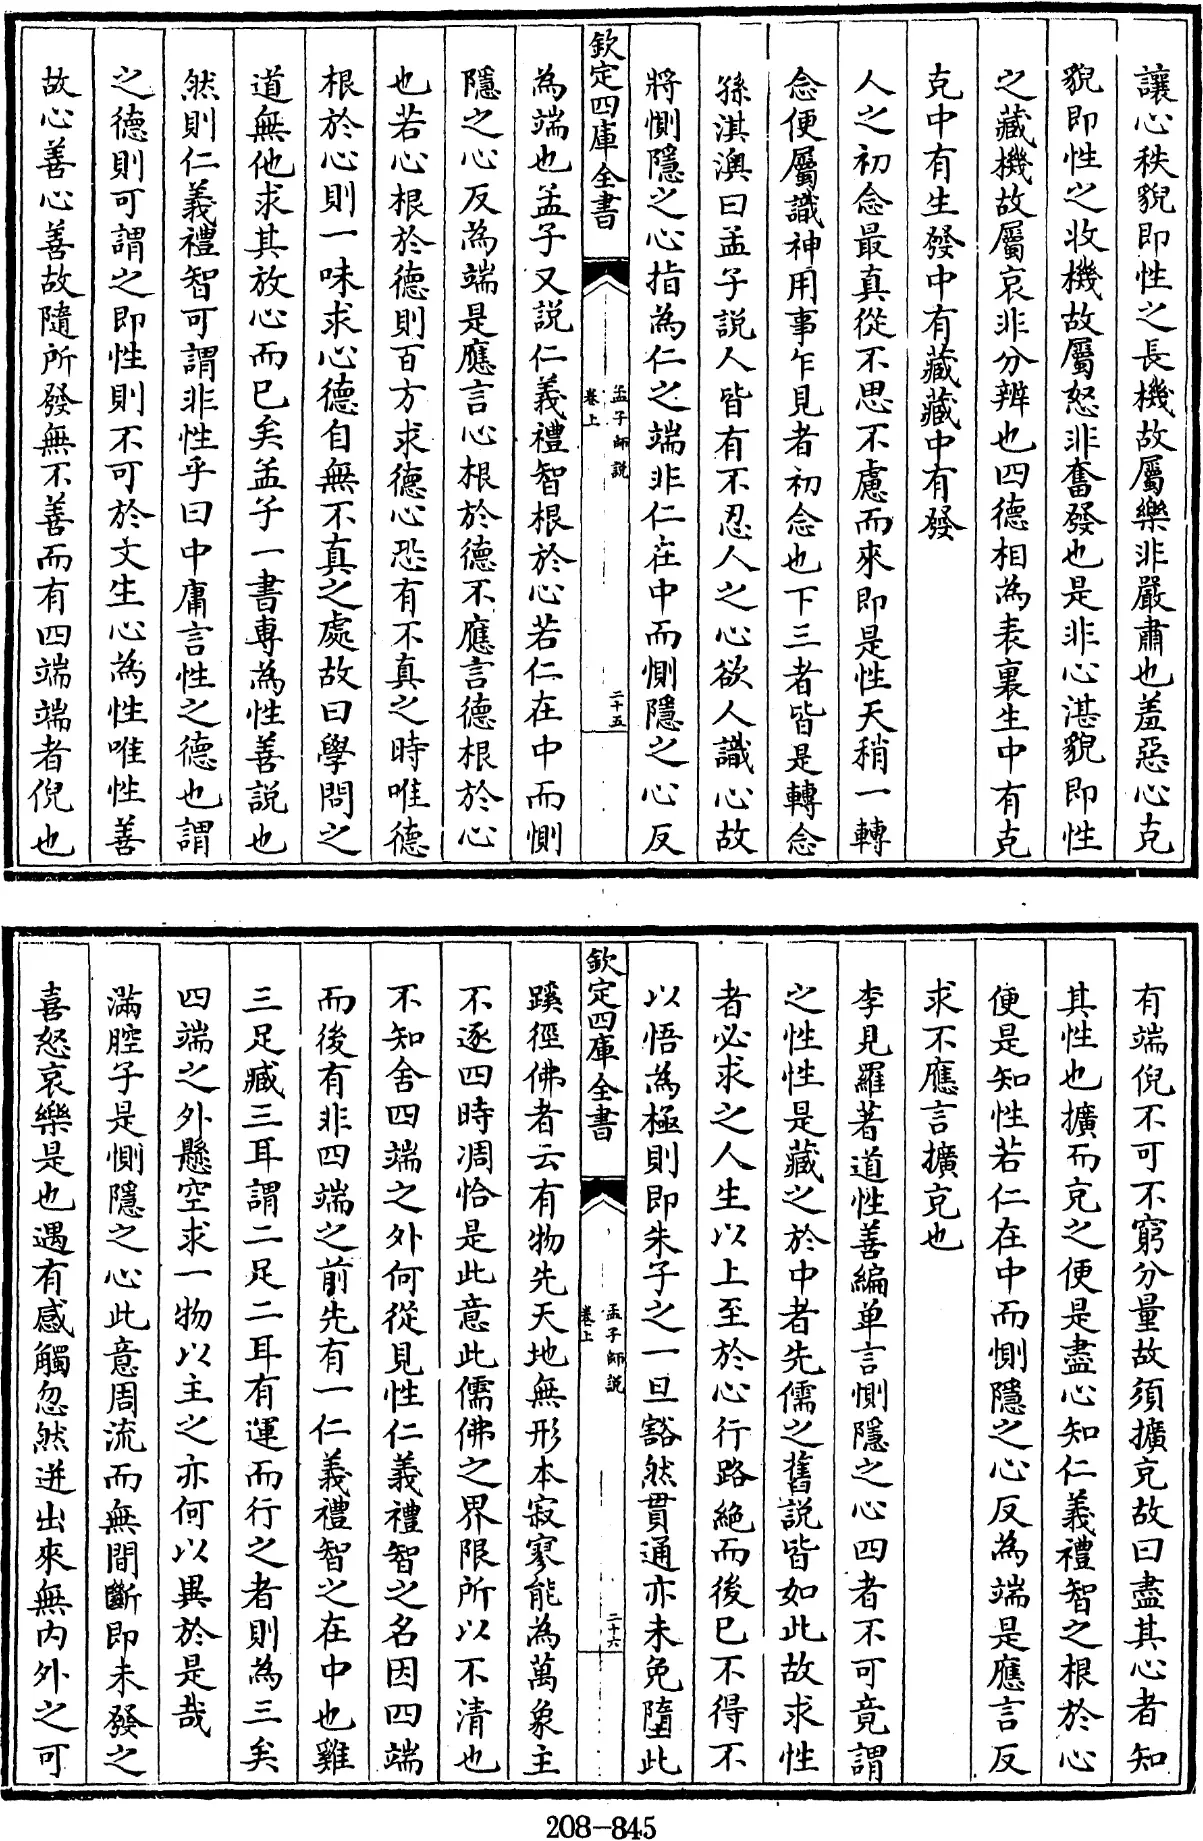 讓心秩貌即性之長機故屬樂非嚴肅也羞惡心克
貌即性之收機故屬怒非奮發也是非心湛貌即性
之藏機故屬哀非分辨也四德相為表裏生中有克
克中有生發中有藏藏中有發
人之初念最真從不思不慮而來即是性天稍一轉
念便屬識神用事乍見者初念也下三者皆是轉念
孫淇澳曰孟子說人皆有不忍人之心欲人識心故
將惻隱之心指為仁之端非仁在中而惻隱之心反
欽定四庫全書
孟子師說
卷上
二十五
為端也孟子又說仁義禮智根於心若仁在中而惻
隱之心反為端是應言心根於德不應言德根於心
也若心根於德則百方求德心恐有不真之時唯德
根於心則一味求心德自無不真之處故曰學問之
道無他求其放心而已矣孟子一書專為性善說也
然則仁義禮智可謂非性乎曰中庸言性之德也謂
之德則可謂之即性則不可於文生心為性唯性善
故心善心善故隨所發無不善而有四端端者倪也
有端倪不可不窮分量故須擴充故曰盡其心者知
其性也擴而充之便是盡心知仁義禮智之根於心
便是知性若仁在中而惻隱之心反為端是應言反
求不應言擴充也
李見羅著道性善編單言惻隱之心四者不可竟謂
之性性是藏之於中者先儒之舊說皆如此故求性
者必求之人生以上至於心行路絕而後已不得不
以悟為極則即朱子之一旦豁然貫通亦未免墮此
欽定四庫全書
孟子師說
卷上
二十六
蹊徑佛者云有物先天地無形本寂寥能為萬象主
不逐四時凋恰是此意此儒佛之界限所以不清也
不知舍四端之外何從見性仁義禮智之名因四端
而後有非四端之前先有一仁義禮智之在中也雞
三足臧三耳謂二足二耳有運而行之者則為三矣
四端之外懸空求一物以主之亦何以異於是哉
滿腔子是惻隱之心此意周流而無間斷即未發之
喜怒哀樂是也遇有感觸忽然迸出來無內外之可
208-845